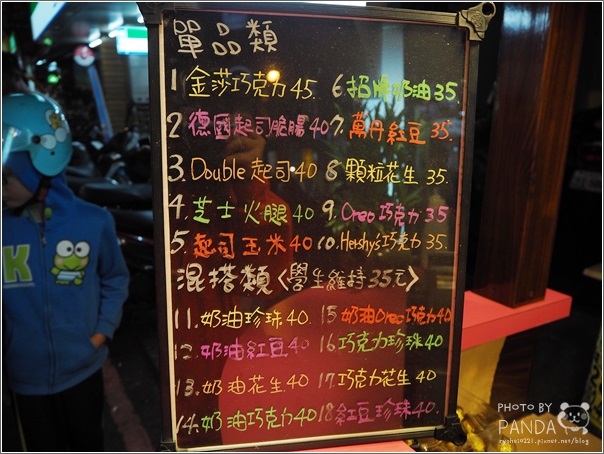 單品類
1 金莎巧克力 45.
2 德國起司脆腸 40
3. Double 起司 40
4. 芝士火腿 40
5. 起司玉米 40
6 招牌奶油 35.
7. 萬丹紅豆 35.
8 顆粒花生 35.
9. Oreo 巧克力 35
10. Hershy's 巧克力 35.
混搭類〈學生維持35元〉
11. 奶油珍珠 40.
12. 奶油紅豆 40
13. 奶油花生 40
14. 奶油巧克力 40
15 奶油Oreo巧克力 40
16 巧克力珍珠 40
17. 巧克力花生 40
18 紅豆珍珠 40.
PHOTO BY
PANDA